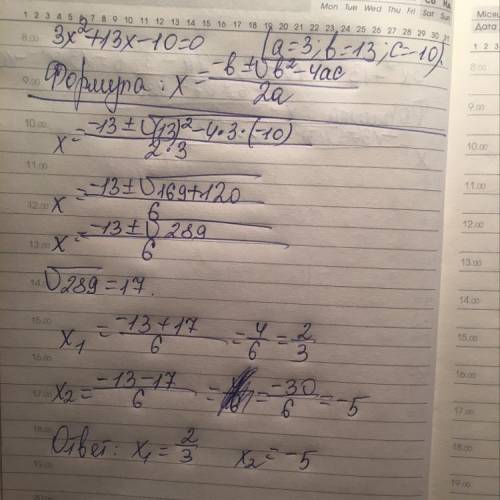 Mon Tue Wed Thu Fri Sat Sun
1 2 3 4 5 6 7 8 9 10 11 12 13 14 15 16 17 18 19 20 21 22 23 24 25 26 27 28 29 30 31
3x²+13x-10=0 (a=3; b=13; c=-10)
Формула: x = (-b ± √b²-4ac)/2a
x = (-13 ± √(13)²-4·3·(-10))/2·3
x = (-13 ± √169+120)/6
x = (-13 ± √289)/6
√289 = 17.
x₁ = (-13+17)/6 = 4/6 = 2/3
x₂ = (-13-17)/6 = = -30/6 = -5
Ответ: x₁ = 2/3 x₂ = -5
8.00
9.00
10.00
11.00
12.00
13.00
14.
15.00
16.00
17.00
18.00
19.00
20.00
Міся
1 2 3
8.00
9.00
10.00
11.00
12.00
13.00
14.00
15.00
16.00
17.00
18.00
19.00